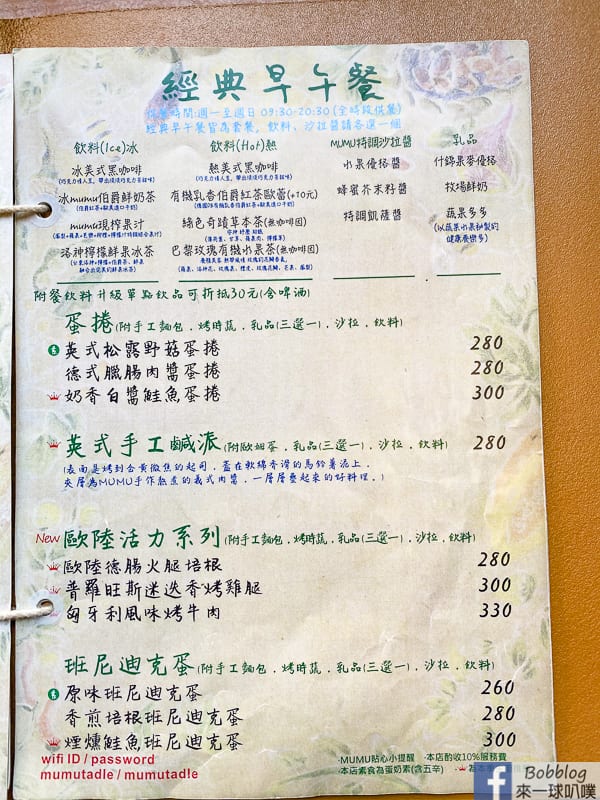 經典早午餐
供餐時間:週一至週日 09:30-20:30 (全時段供餐)
經典早午餐皆為套餐, 飲料、沙拉醬請各選一個
飲料(Ice)冰
冰美式黑咖啡
冰mumu伯爵鮮奶茶
mumu現榨果汁
洛神檸檬鮮果冰茶
飲料(Hot)熱
熱美式黑咖啡
有機乳香伯爵紅茶歐蕾(+10元)
綠色奇蹟草本茶(無咖啡因)
巴黎玫瑰有機水果茶(無咖啡因)
MUMU特調沙拉醬
水果優格醬
蜂蜜芥末籽醬
特調凱薩醬
乳品
什錦果麥優格
牧場鮮奶
蔬果多多
(以蔬果水果秘製的
健康養樂多)
附餐飲料升級單點飲品可折抵30元(含啤酒)
蛋捲(附手工麵包．烤時蔬．乳品(三選一)．沙拉．飲料)
英式松露野菇蛋捲 280
德式臘腸肉醬蛋捲 280
奶香白醬鮭魚蛋捲 300
英式手工鹹派(附歐姆蛋．乳品(三選一)．沙拉．飲料) 280
(表面是烤到金黃微焦的起司，蓋在軟綿香滑的馬鈴薯泥上，
夾層為MUMU手作熬煮的義式肉醬，一層層疊起來的好料理。)
New 歐陸活力系列(附手工麵包．烤時蔬．乳品(三選一)．沙拉．飲料)
歐陸德腸火腿培根 280
普羅旺斯迷迭香烤雞腿 300
匈牙利風味烤牛肉 330
班尼迪克蛋(附手工麵包．烤時蔬．乳品(三選一)．沙拉．飲料)
原味班尼迪克蛋 260
香煎培根班尼迪克蛋 280
煙燻鮭魚班尼迪克蛋 300
wifi ID / password
mumutadle / mumutadle
·MUMU貼心小提醒 ·本店酌收10%服務費
·本店素食為蛋奶素(含五辛)
Bobblog
來一球叭噗